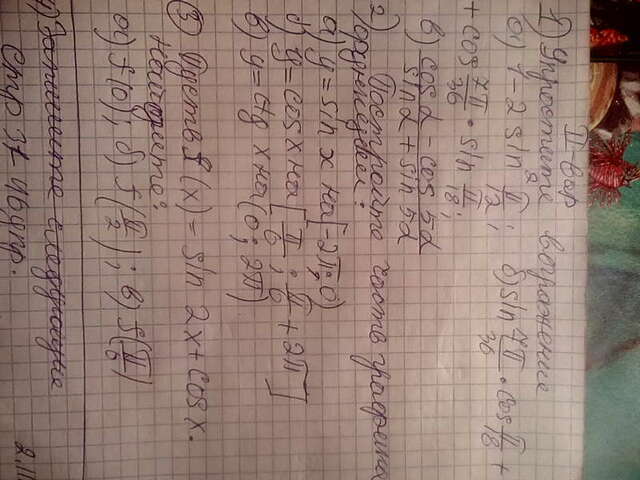 II-вар
1) Упростите выражение
а) 1-2 sin² π/12; б) sin 7π/36 · cos π/18 +
+ cos 7π/36 · sin π/18;
в) (cos α - cos 5α)/(sin α + sin 5α)
2) Постройте часть графика
функции:
а) y = sin x на [-2π; 0)
б) y = cos x на [π/6; π/6 + 2π]
в) y = ctg x на (0; 2π)
3) Пусть f(x) = sin 2x + cos x.
Найдите:
а) f(0); б) f(π/2); в) f(π/6)
4) Запишите следующие
стр 37 46 упр.